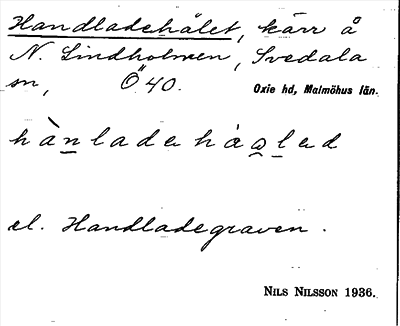 Handladehålet, kärr å
N. Lindholmen, Svedala
sn, Ö 40. Oxie hd, Malmöhus län.
hànladehàləd
el. Handladegraven.
NILS NILSSON 1936.